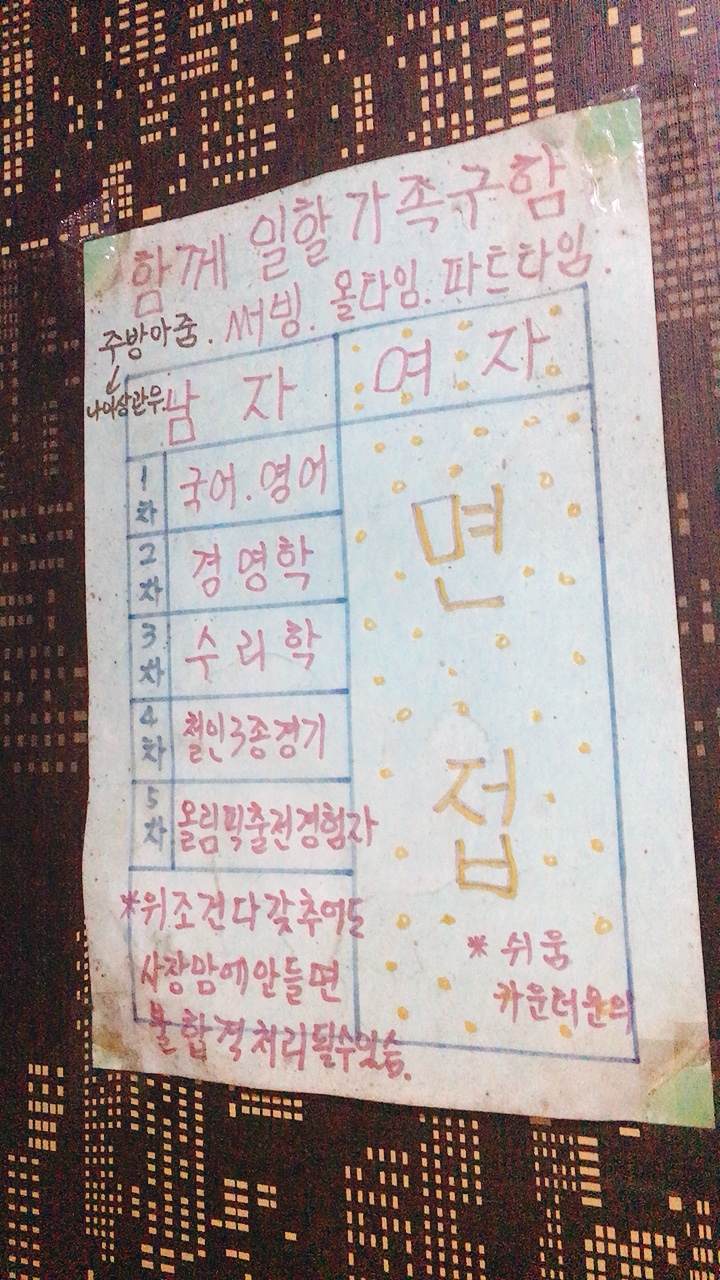 함께 일할 가족구함
주방아줌. 써빙. 올타임. 파트타임.
↓
나이상관무.
남 자
1차 국어.영어
2차 경영학
3차 수리학
4차 철인3종경기
5차 올림픽출전경험자
*위조건다갖추어도
사장맘에안들면
불합격처리될수있슴.
여 자
면
접
* 쉬움
카운터문의